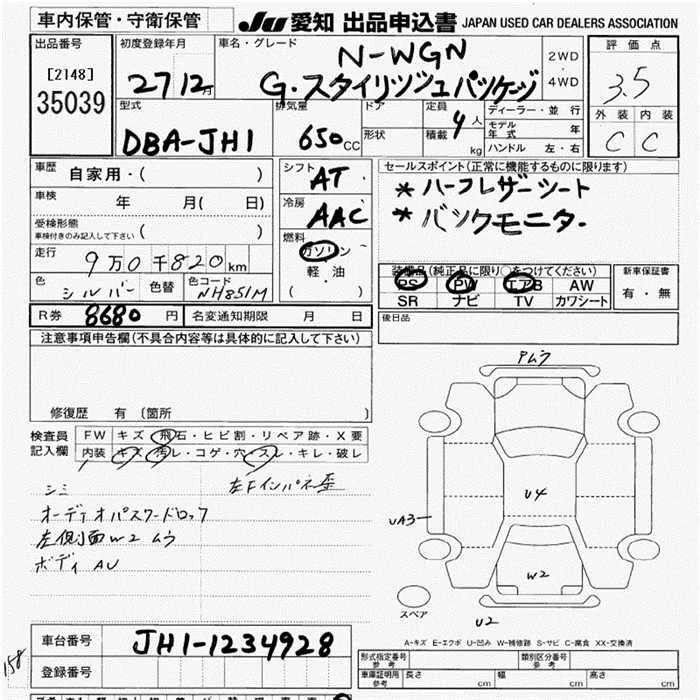 車内保管・守衛保管
JU 愛知 出品申込書 JAPAN USED CAR DEALERS ASSOCIATION
出品番号
[2148]
35039
初度登録年月
27年12月
車名・グレード
N-WGN
G・スタイリッシュパッケージ
2WD
4WD
評価点
3.5
外装 内装
C C
型式
DBA-JH1
排気量
650cc
ドア
形状
定員 4人
積載 kg
ディーラー・並行
モデル年式 年
ハンドル 左・右
車歴
自家用・( )
車検
年 月( 日)
受検形態
車検付きのみ記入して下さい ( )
走行
9万0千820km
色 シルバー 色替 色コード NH851M
シフト
AT
冷房
AAC
燃料
ガソリン
軽・油
( )
セールスポイント(正常に機能するものに限ります)
*ハーフレザーシート
*バックモニター
装備品(純正品に限り○をつけてください)
PS PW エアB AW
SR ナビ TV カワシート
新車保証書
有・無
R券 8680円 名変通知期限 月 日
後日品
注意事項申告欄(不具合内容等は具体的に記入して下さい)
修復歴 有 (箇所 )
検査員記入欄
FW キズ・飛石・ヒビ割・リペア跡・X要
内装 キズ・汚レ・コゲ・穴・スレ・キレ・破レ
シミ 左Fインパネ歪
オーディオパスワードロック
左側面W2 ムラ
ボディ AU
Pムラ
U4
UA3
W2
スペア
U2
A-キズ E-エクボ U-凹み W-補修跡 S-サビ C-腐食 XX-交換済
158
車台番号
JH1-1234928
登録番号
形式指定番号 参考
類別区分番号 参考
車庫証明用 参考 長さ cm 幅 cm 高さ cm